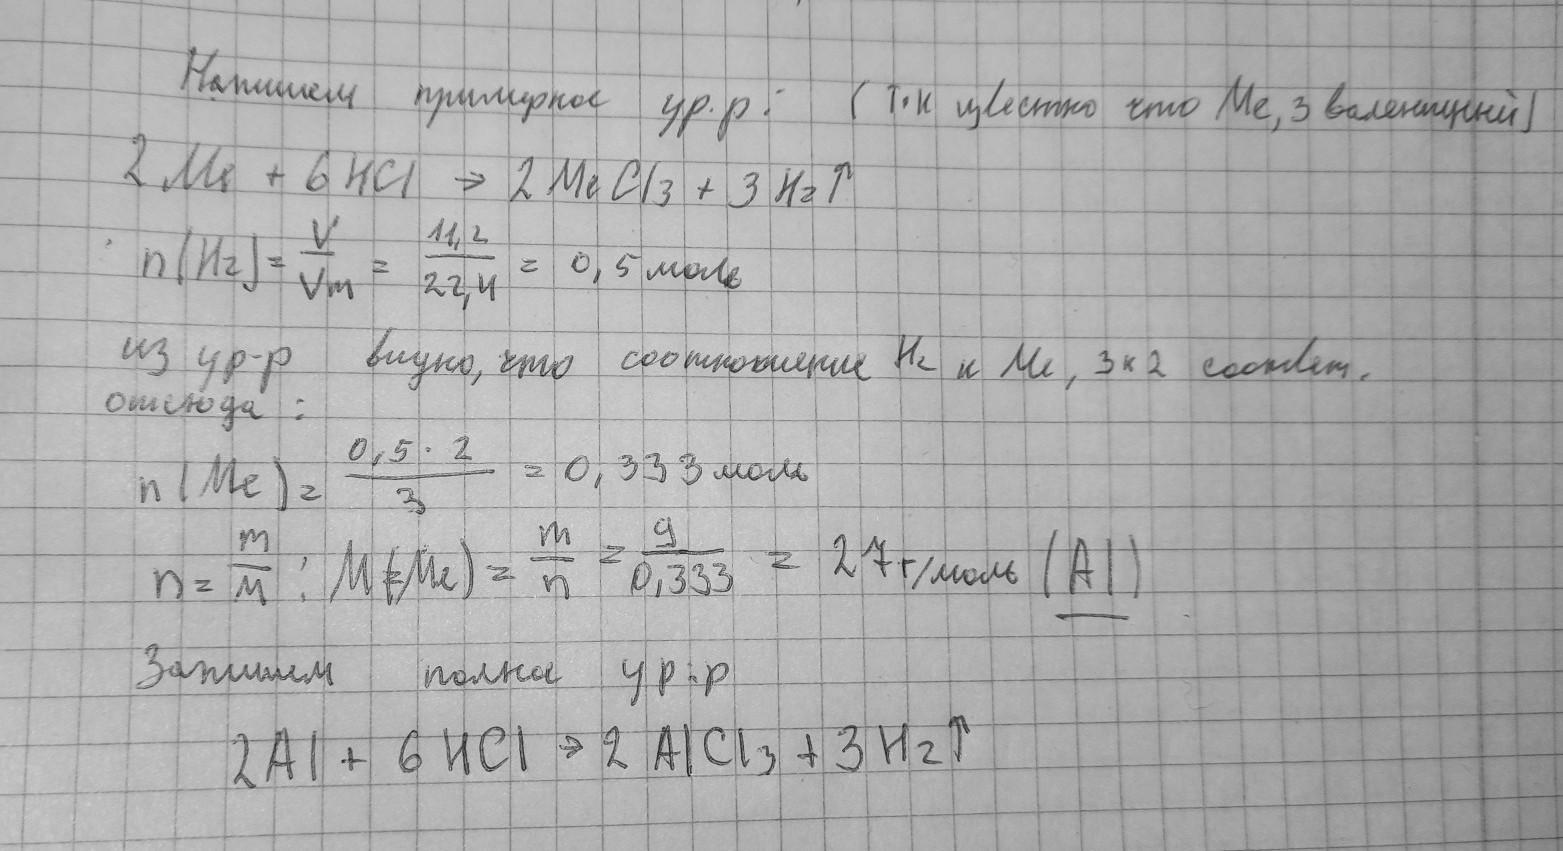 Напишем примерное ур.р: (т.к известно что Me, 3 валентный)
2Me + 6HCl → 2MeCl3 + 3H2↑
n(H2) = V/Vm = 11,2/22,4 = 0,5 моль
из ур-р видно, что соотношение H2 к Me, 3 к 2 соответ.
отсюда:
n(Me) = 0,5·2/3 = 0,333 моль
n = m/M ; M(Me) = m/n = 9/0,333 = 27 г/моль (Al)
Запишем полное ур.р
2Al + 6HCl → 2AlCl3 + 3H2↑